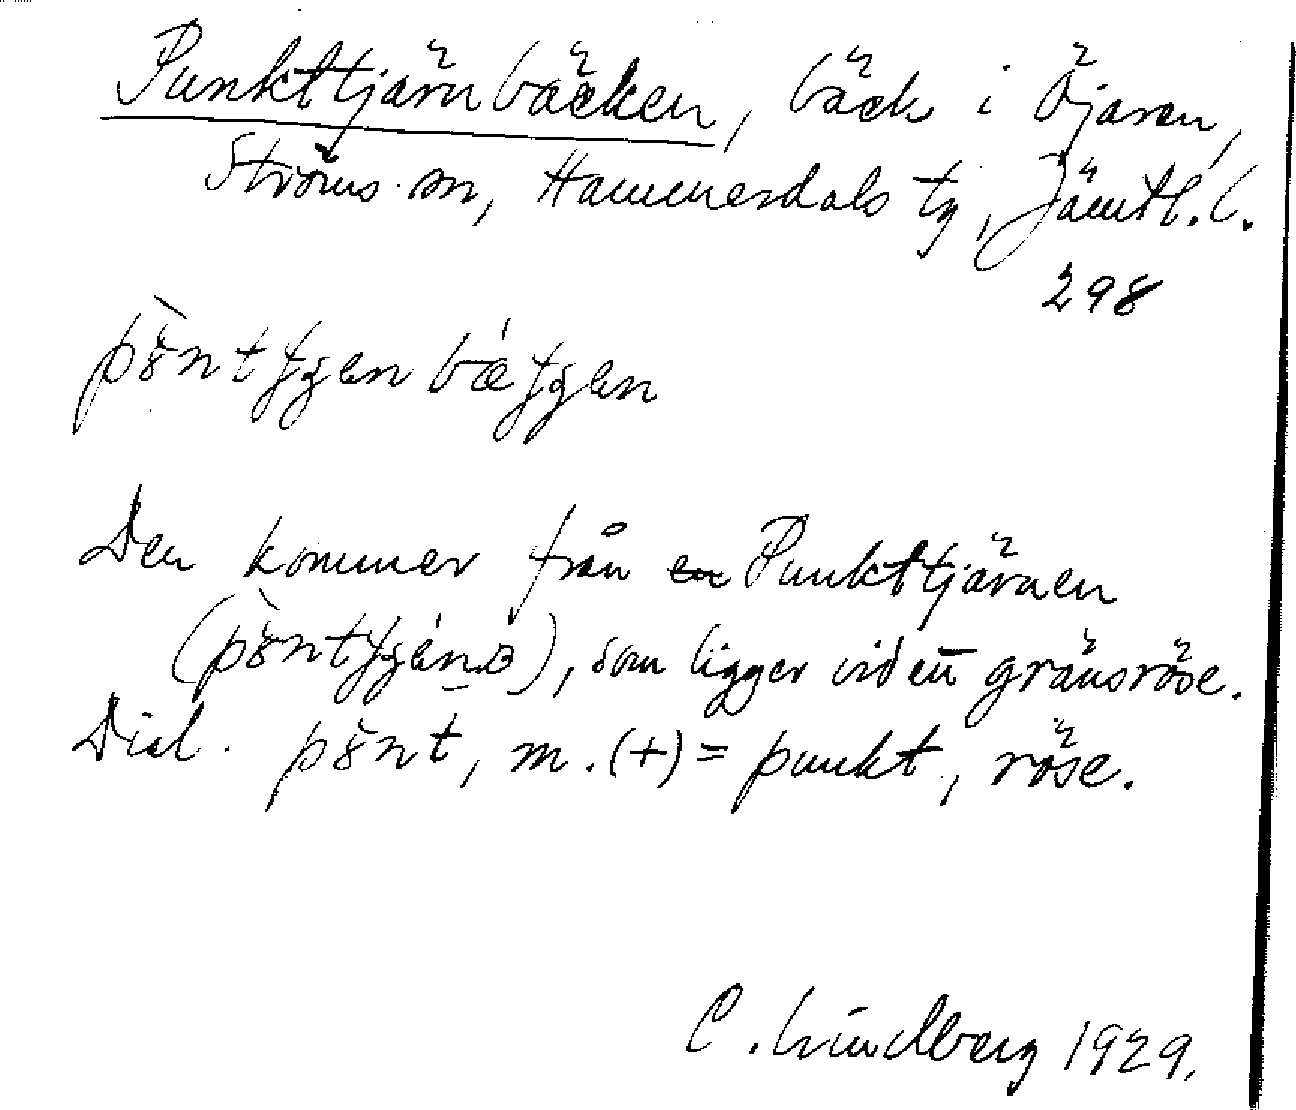 Punkttjärnbäcken, bäck i Öjaren,
Ströms sn, Hammerdals tg, Jämtl. l.
298
Den kommer från en Punkttjärnen
som ligger vid ett gränsröse.
Dial. pönt, m. (+) = punkt, röse.
C. Lindberg 1929.